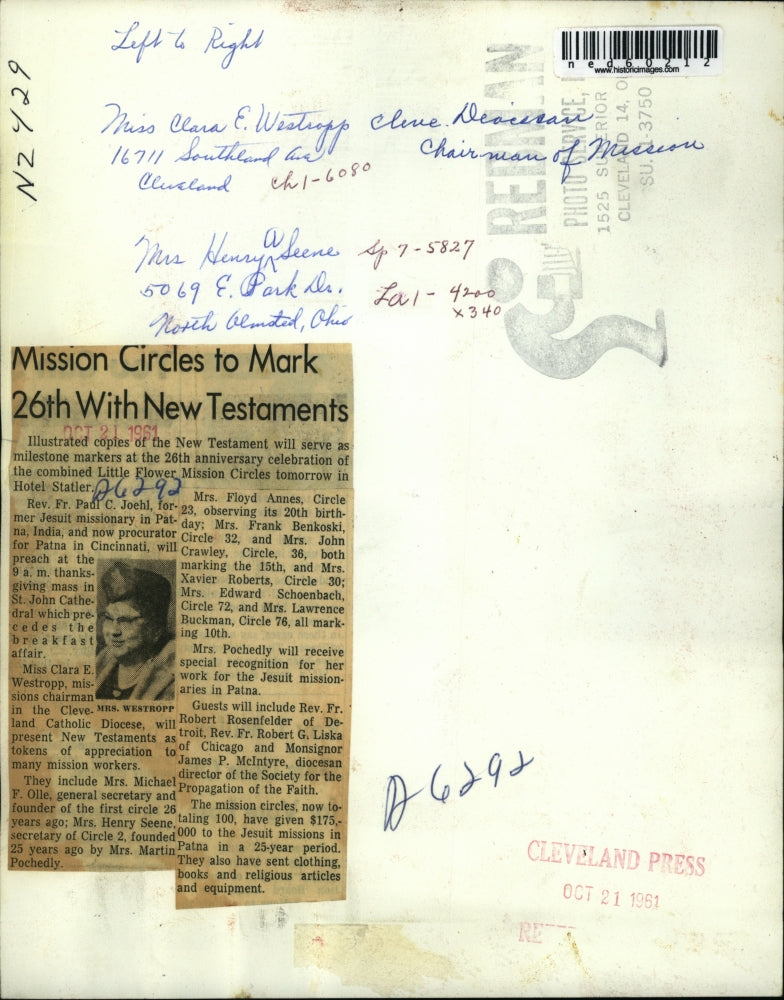 Left to Right
n e d 6 0 2 1 2
www.historicimages.com
N2429
Miss Clara E. Westropp Cleve. Diocesan
16711 Southland Ave Chairman of Mission
Cleveland Ch 1-6080
Mrs Henry A Seene Sp 7-5827
5069 E. Park Dr. La 1- 4200
x 340
North Olmsted, Ohio
PHOTO SERVICE,
1525 SUPERIOR
CLEVELAND 14, O
SU. 1-3750
Mission Circles to Mark
26th With New Testaments
OCT 21 1961
Illustrated copies of the New Testament will serve as
milestone markers at the 26th anniversary celebration of
the combined Little Flower Mission Circles tomorrow in
Hotel Statler.
D6292
Rev. Fr. Paul C. Joehl, for-
mer Jesuit missionary in Pat-
na, India, and now procurator
for Patna in Cincinnati, will
preach at the
9 a. m. thanks-
giving mass in
St. John Cathe-
dral which pre-
cedes the
breakfast
affair.
Miss Clara E.
Westropp, mis-
sions chairman
in the Cleve-
MRS. WESTROPP
land Catholic Diocese, will
present New Testaments as
tokens of appreciation to
many mission workers.
They include Mrs. Michael
F. Olle, general secretary and
founder of the first circle 26
years ago; Mrs. Henry Seene,
secretary of Circle 2, founded
25 years ago by Mrs. Martin
Pochedly.
Mrs. Floyd Annes, Circle
23, observing its 20th birth-
day; Mrs. Frank Benkoski,
Circle 32, and Mrs. John
Crawley, Circle, 36, both
marking the 15th, and Mrs.
Xavier Roberts, Circle 30;
Mrs. Edward Schoenbach,
Circle 72, and Mrs. Lawrence
Buckman, Circle 76, all mark-
ing 10th.
Mrs. Pochedly will receive
special recognition for her
work for the Jesuit mission-
aries in Patna.
Guests will include Rev. Fr.
Robert Rosenfelder of De-
troit, Rev. Fr. Robert G. Liska
of Chicago and Monsignor
James P. McIntyre, diocesan
director of the Society for the
Propagation of the Faith.
The mission circles, now to-
taling 100, have given $175,-
000 to the Jesuit missions in
Patna in a 25-year period.
They also have sent clothing,
books and religious articles
and equipment.
D6292
CLEVELAND PRESS
OCT 21 1961